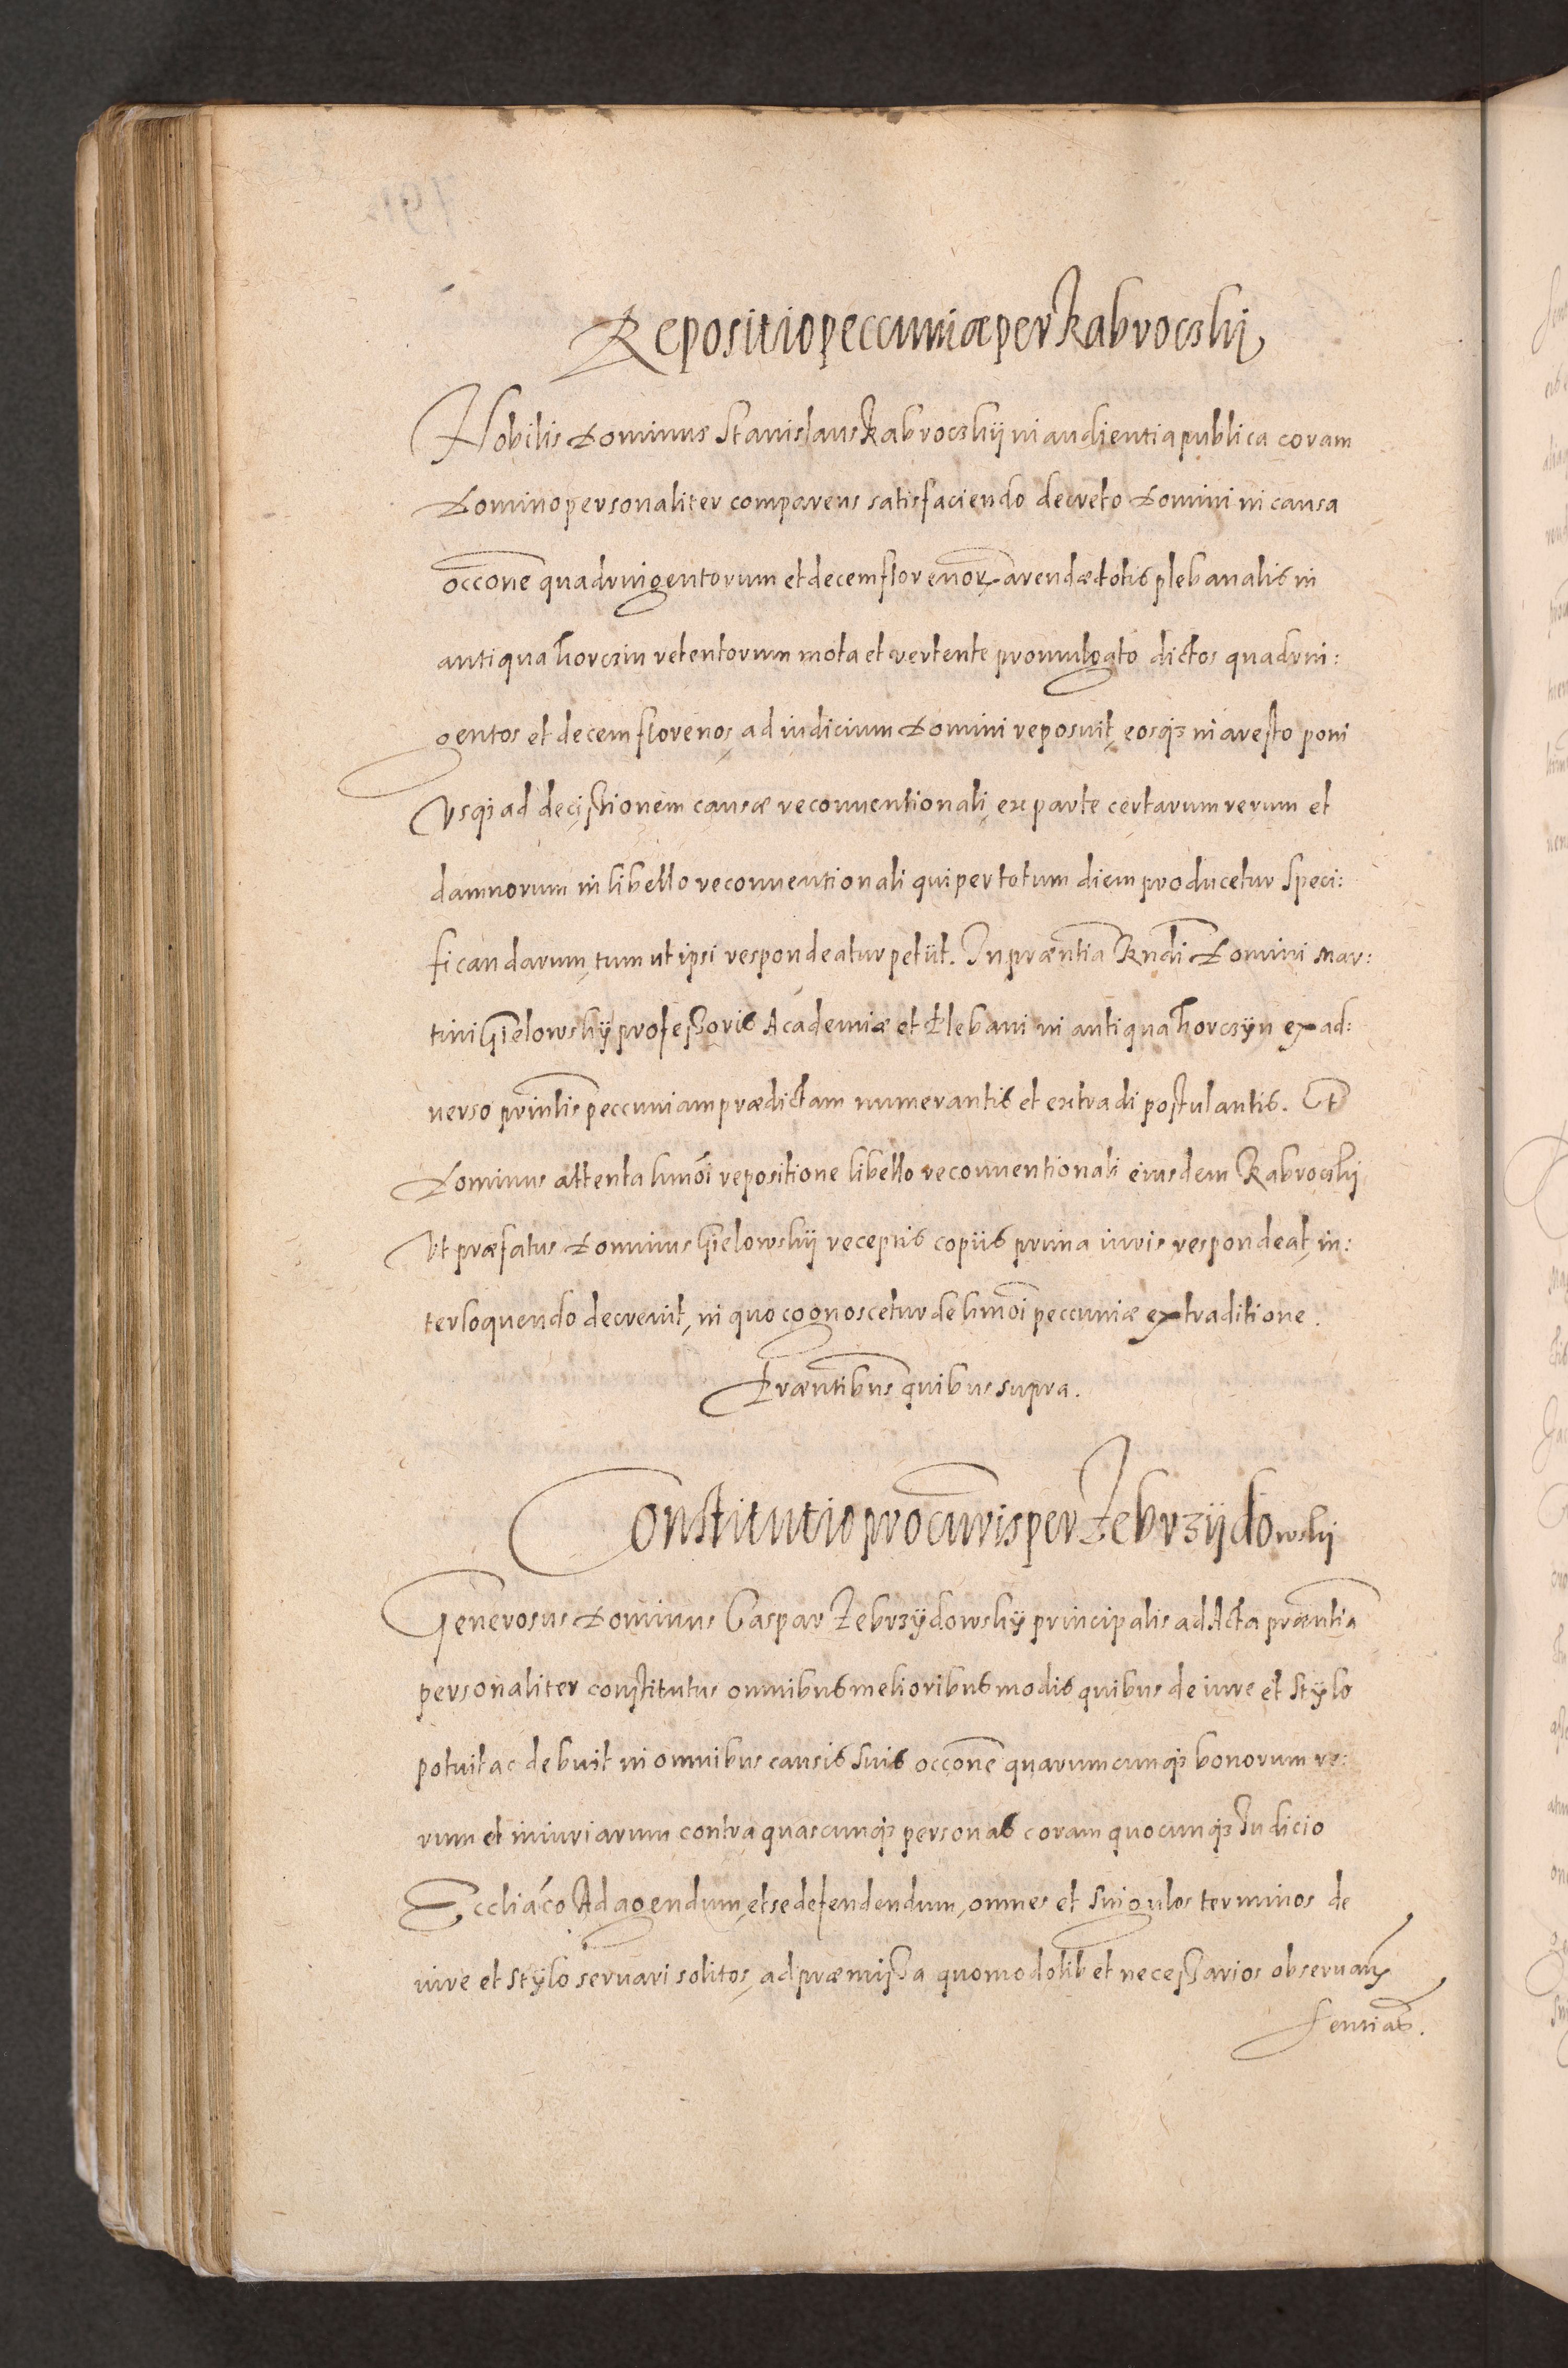 Repositio peccuniæ per Kabroczkij
Nobilis Dominus Stanislaus Kabroczkij in audientia publica coram
Domino personaliter comparens satisfaciendo decreto Domini in causa
occone quadringentorum et decem florenor. arendæ dotis plebanalis in
antiqua Korczin retentorum mota et vertente promulgato dictos quadrin:
gentos et decem florenos, ad iudicium Domini reposuit, eosq3 in aresto poni
Vsq3 ad decissionem causæ reconuentionali, ex parte certarum rerum et
damnorum in libello reconuentionali qui per totum diem producetur speci:
ficandarum, tum ut ipsi respondeatur petiit. In præntia Rndi Domini Mar:
tini Gielowskÿ professoris Academiæ et Plebani in antiqua Korczÿn ex ad:
uerso prinlis peccuniam prædictam numerantis et extradi postulantis. Et
Dominus attenta hmõi repositione libello reconuentionali eiusdem Kabroczkij
Vt præfatus Dominus Gielowskij receptis copiis prima iuris respondeat, in:
terloquendo decreuit, in quo cognoscetur de hmõi peccuniæ extraditione.
Præntibus quibus supra.
Constitutio procuris per Zebrzÿdowskij
Generosus Dominus Caspar Zebrzÿdowskÿ principalis ad Acta præntia
personaliter constitutus omnibus melioribus modis quibus de iure et stÿlo
potuit ac debuit in omnibus causis suis occone quarumcunq3 bonorum re:
rum et iniuriarum contra quascunq3 personas coram quocunq3 Iudicio
Eccliáco Ad agendum, et se defendendum, omnes et singulos terminos de
iure et stÿlo seruari solitos, ad præmissa quomodolibet necessarios obseruan
sentias.